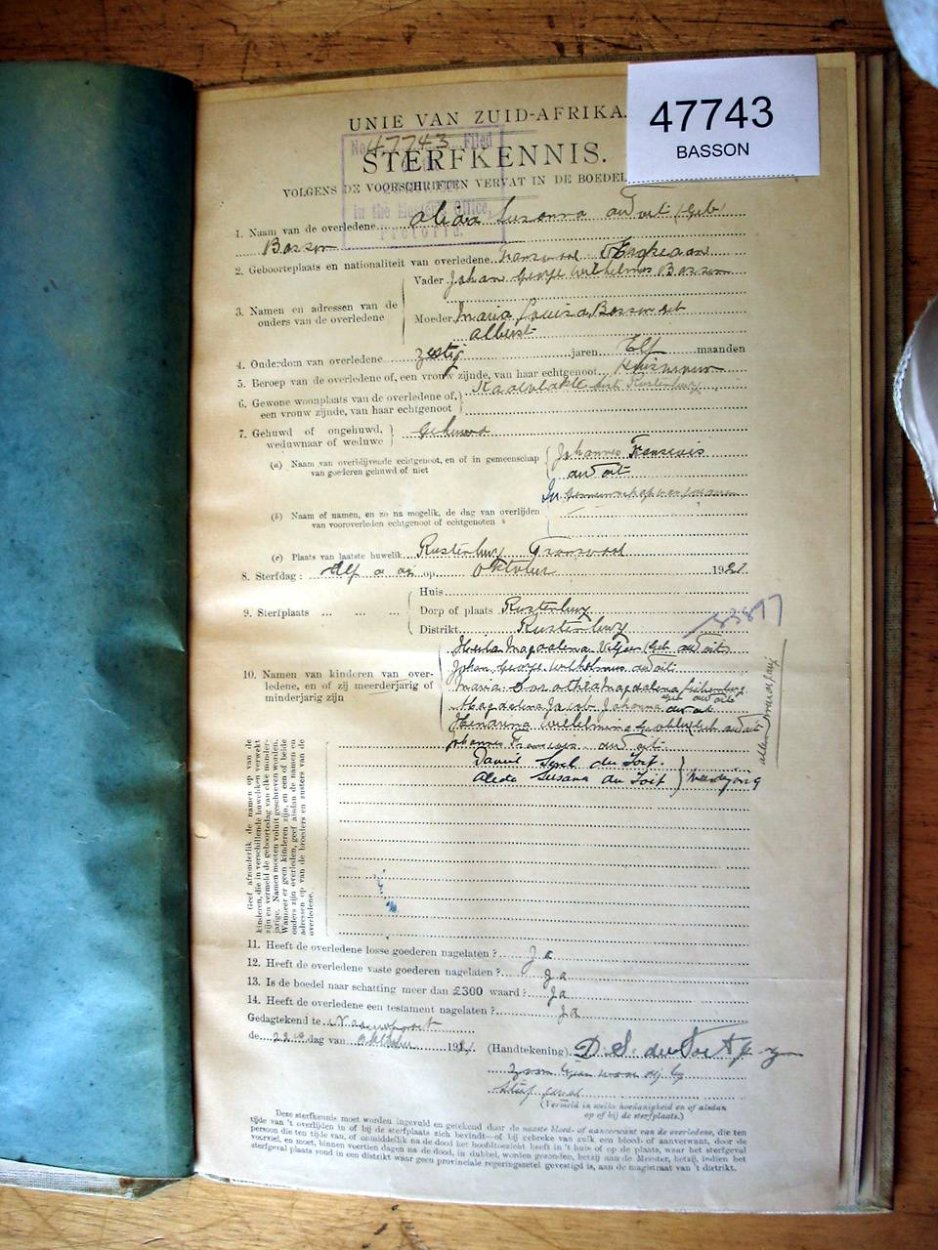 47743
BASSON
UNIE VAN ZUID-AFRIKA.
No. 47743 Filed
in the Master's Office,
Pretoria.
STERFKENNIS.
VOLGENS DE VOORSCHRIFTEN VERVAT IN DE BOEDEL
1. Naam van de overledene Alida Susanna du Toit (Geb
Basson
2. Geboorteplaats en nationaliteit van overledene Transvaal
3. Namen en adressen van de ouders van de overledene
Vader Johan George Wilhelmus Basson
Moeder Maria Louisa Basson
Albert
4. Ouderdom van overledene zestig jaren Elf maanden
5. Beroep van de overledene of, een vrouw zijnde, van haar echtgenoot Huisvrouw
6. Gewone woonplaats van de overledene of, een vrouw zijnde, van haar echtgenoot Rustenburg
7. Gehuwd of ongehuwd, weduwnaar of weduwe Gehuwd
(a) Naam van overblijvende echtgenoot, en of in gemeenschap van goederen gehuwd of niet
Johannes Francois
du Toit
In Gemeenschap van goederen
(b) Naam of namen, en zo na mogelik, de dag van overlijden van vooroverleden echtgenoot of echtgenoten
(c) Plaats van laatste huwelik Rustenburg Transvaal
8. Sterfdag: Elf op Oktober 1921
9. Sterfplaats ... ... ...
Huis
Dorp of plaats Rustenburg
Distrikt Rustenburg
10. Namen van kinderen van overledene, en of zij meerderjarig of minderjarig zijn
Magdalena (Geb du Toit)
Johan George Wilhelmus du Toit
Maria Dorothea Magdalena
Magdalena Jacoba Johanna du Toit
Wilhelmina (Geb du Toit)
Johannes Francois du Toit
Daniel du Toit
Aleda Susana du Toit
Geef afzonderlik de namen op van de kinderen, die in verschillende huweliken verwekt zijn en vermeld de geboortedag van elke minderjarige. Namen moeten voluit geschreven worden. Wanneer er geen kinderen zijn, en een of beide ouders zijn overleden, geef alsdan de namen en adressen op van de broeders en zusters van de overledene.
11. Heeft de overledene losse goederen nagelaten? Ja
12. Heeft de overledene vaste goederen nagelaten? Ja
13. Is de boedel naar schatting meer dan £300 waard? Ja
14. Heeft de overledene een testament nagelaten? Ja
Gedagtekend te
de 22 dag van Oktober 1921
(Handtekening) D. S. du Toit
zoon
(Vermeld in welke hoedanigheid en of alsdan op of bij de sterfplaats.)
Deze sterfkennis moet worden ingevuld en getekend door de naaste bloed- of aanverwant van de overledene, die ten
tijde van 't overlijden in of bij de sterfplaats zich bevindt—of bij gebreke van zulk een bloed- of aanverwant, door de
persoon die ten tijde van, of onmiddellik na de dood het hoofdtoezicht heeft in 't huis of op de plaats, waar het sterfgeval
voorviel, en moet, binnen veertien dagen na de dood, in dubbel, worden gezonden, hetzij aan de Meester, hetzij, indien het
sterfgeval plaats vond in een distrikt waar geen provinciale regeringszetel gevestigd is, aan de magistraat van 't distrikt.